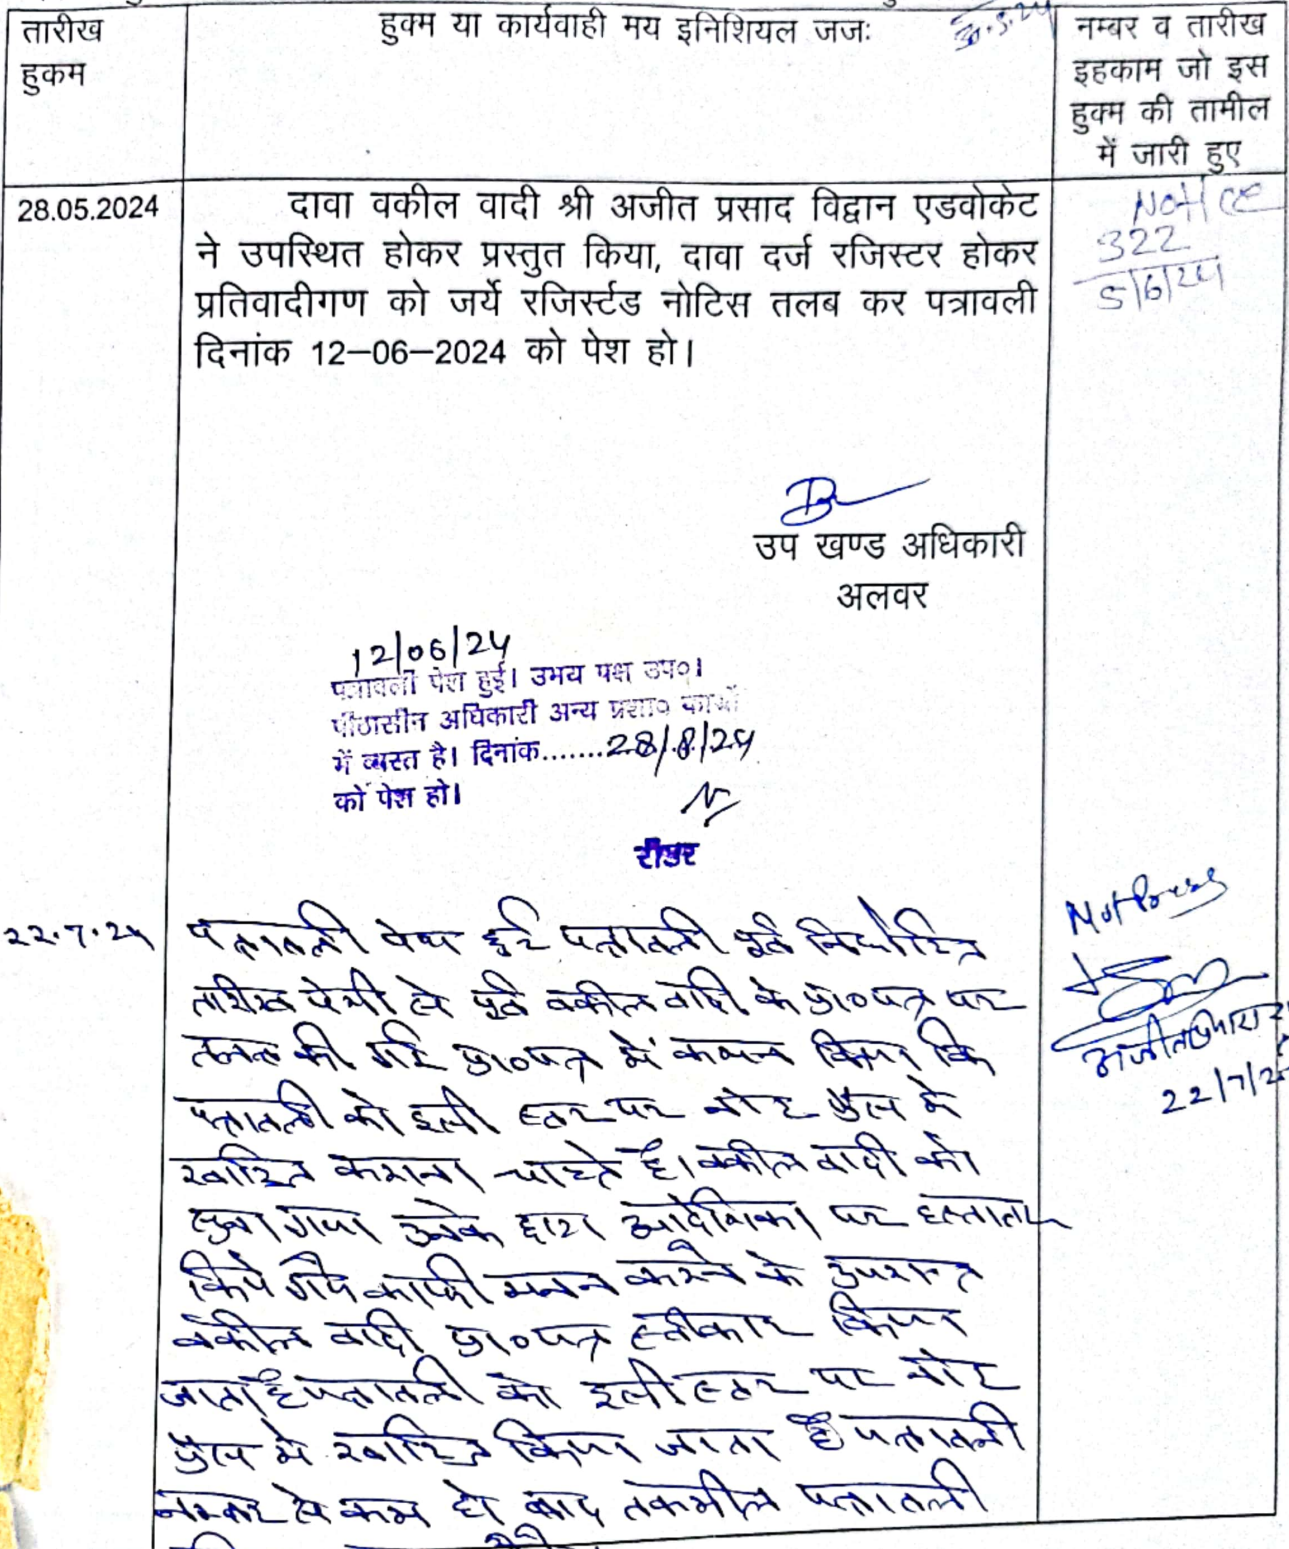 तारीख
हुकम
हुक्म या कार्यवाही मय इनिशियल जजः
नम्बर व तारीख
इहकाम जो इस
हुक्म की तामील
में जारी हुए
28.05.2024
दावा वकील वादी श्री अजीत प्रसाद विद्वान एडवोकेट
ने उपस्थित होकर प्रस्तुत किया, दावा दर्ज रजिस्टर होकर
प्रतिवादीगण को जर्ये रजिर्स्टड नोटिस तलब कर पत्रावली
दिनांक 12–06–2024 को पेश हो।
Notice
322
5/6/24
उप खण्ड अधिकारी
अलवर
12/06/24
पत्रावली पेश हुई। उभय पक्ष उप०।
पीठासीन अधिकारी अन्य प्रशा० कार्यो
में व्यस्त है। दिनांक.......28/8/24
को पेश हो।
रीडर
22.7.24
पत्रावली पेश हुई पत्रावली पूर्व निर्धारित
तारीख पेशी से पूर्व वकील वादी के प्रा०पत्र पर
तलब की गई प्रा०पत्र में कथन किया कि
पत्रावली को इसी स्तर पर नोट प्रेस में
खारिज कराना चाहते है। वकील वादी को
सुना गया उनके द्वारा आदेशिका पर हस्ताक्षर
किये गये काफी मनन करने के उपरान्त
वकील वादी प्रा०पत्र स्वीकार किया
जाता है पत्रावली को इसी स्तर पर नोट
प्रेस में खारिज किया जाता है पत्रावली
नम्बर से कम हो बाद तकमील पत्रावली
Not Press
22/7/24